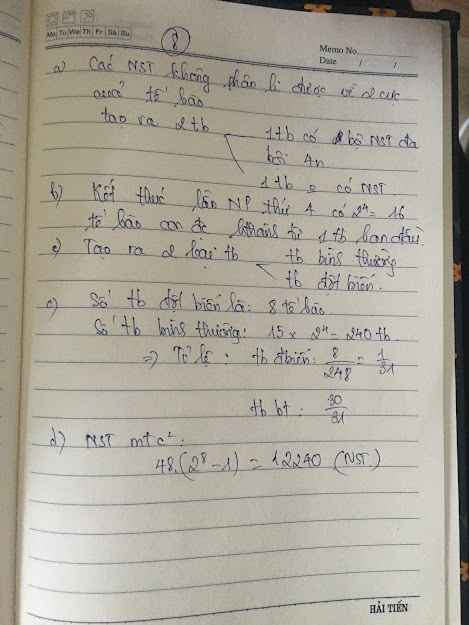 Mo Tu We Th Fr Sa Su
Memo No.
Date / /
8
a) Các NST không phân li được về 2 cực
của tế bào
tạo ra 2 tb
1 tb có 2 bộ NST đa
bội 4n
1 tb 0 có NST.
b) Kết thúc lần NP thứ 4 có 2⁴ = 16
tế bào con đc từ 1 tb ban đầu.
c) Tạo ra 2 loại tb
tb bình thường
tb đột biến.
c) Số tb đột biến là: 8 tế bào
Số tb bình thường: 15 x 2⁴ = 240 tb.
=> Tỉ lệ: tb đbiến: 8/248 = 1/31
tb bt: 30/31
d) NST mt c²:
48.(2⁸ - 1) = 12240 (NST)
HẢI TIẾN